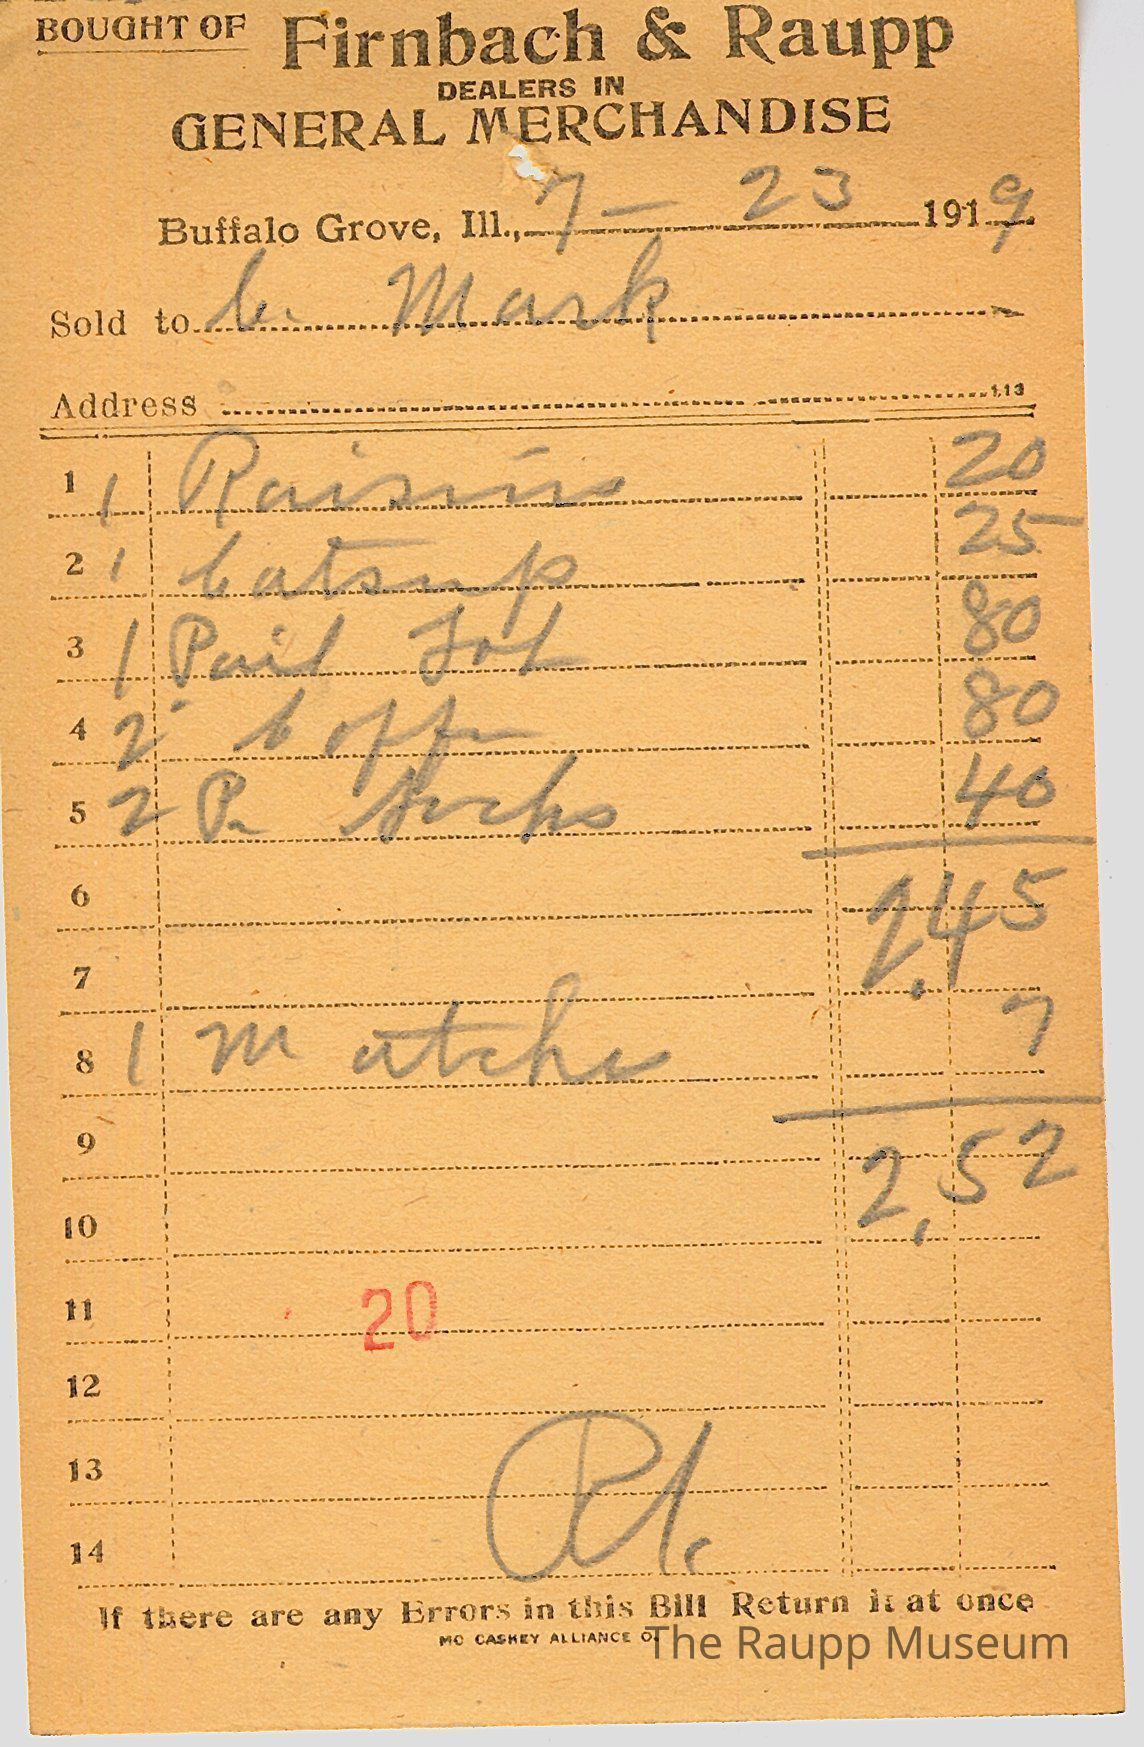 BOUGHT OF Firnbach & Raupp
DEALERS IN
GENERAL MERCHANDISE
Buffalo Grove, Ill., 7 - 23 1919
Sold to C. Mark
Address 1,13
1 1 Raisins 20
2 1 Catsup 25
3 1 Pail 80
4 2 Coffee 80
5 2 Pr Socks 40
6 2,45
7
8 1 Matches 7
9 2,52
10
11 20
12
13
14
If there are any Errors in this Bill Return it at once
MC CASKEY ALLIANCE O.
The Raupp Museum